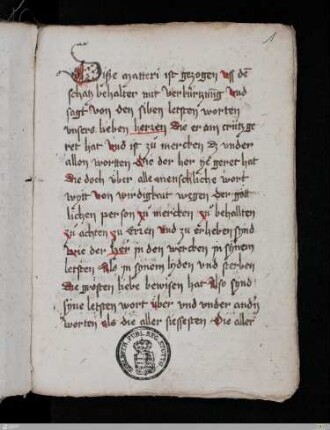 1
Disse matteri ist gezogen uss dē
schatz behalter mit verkürtzung Und
sagt von den siben letsten worten
vnsers lieben herren die er am crütz ge
ret hat Und ist zu mercken dz vnder
allen wortten Die der her ye geret hat
die doch über alle menschliche wort
wytt von wirdigkait wegen der gött
lichen person zu mercken zu behaltten
zu achten zu eren und zu erheben synd
wie der her in den wercken in synem
letsten Als in synem lyden und sterben
die grosten liebe bewisen hat Also synd
syne letsten wort über und vnder andn
worten als die aller suessesten Die aller